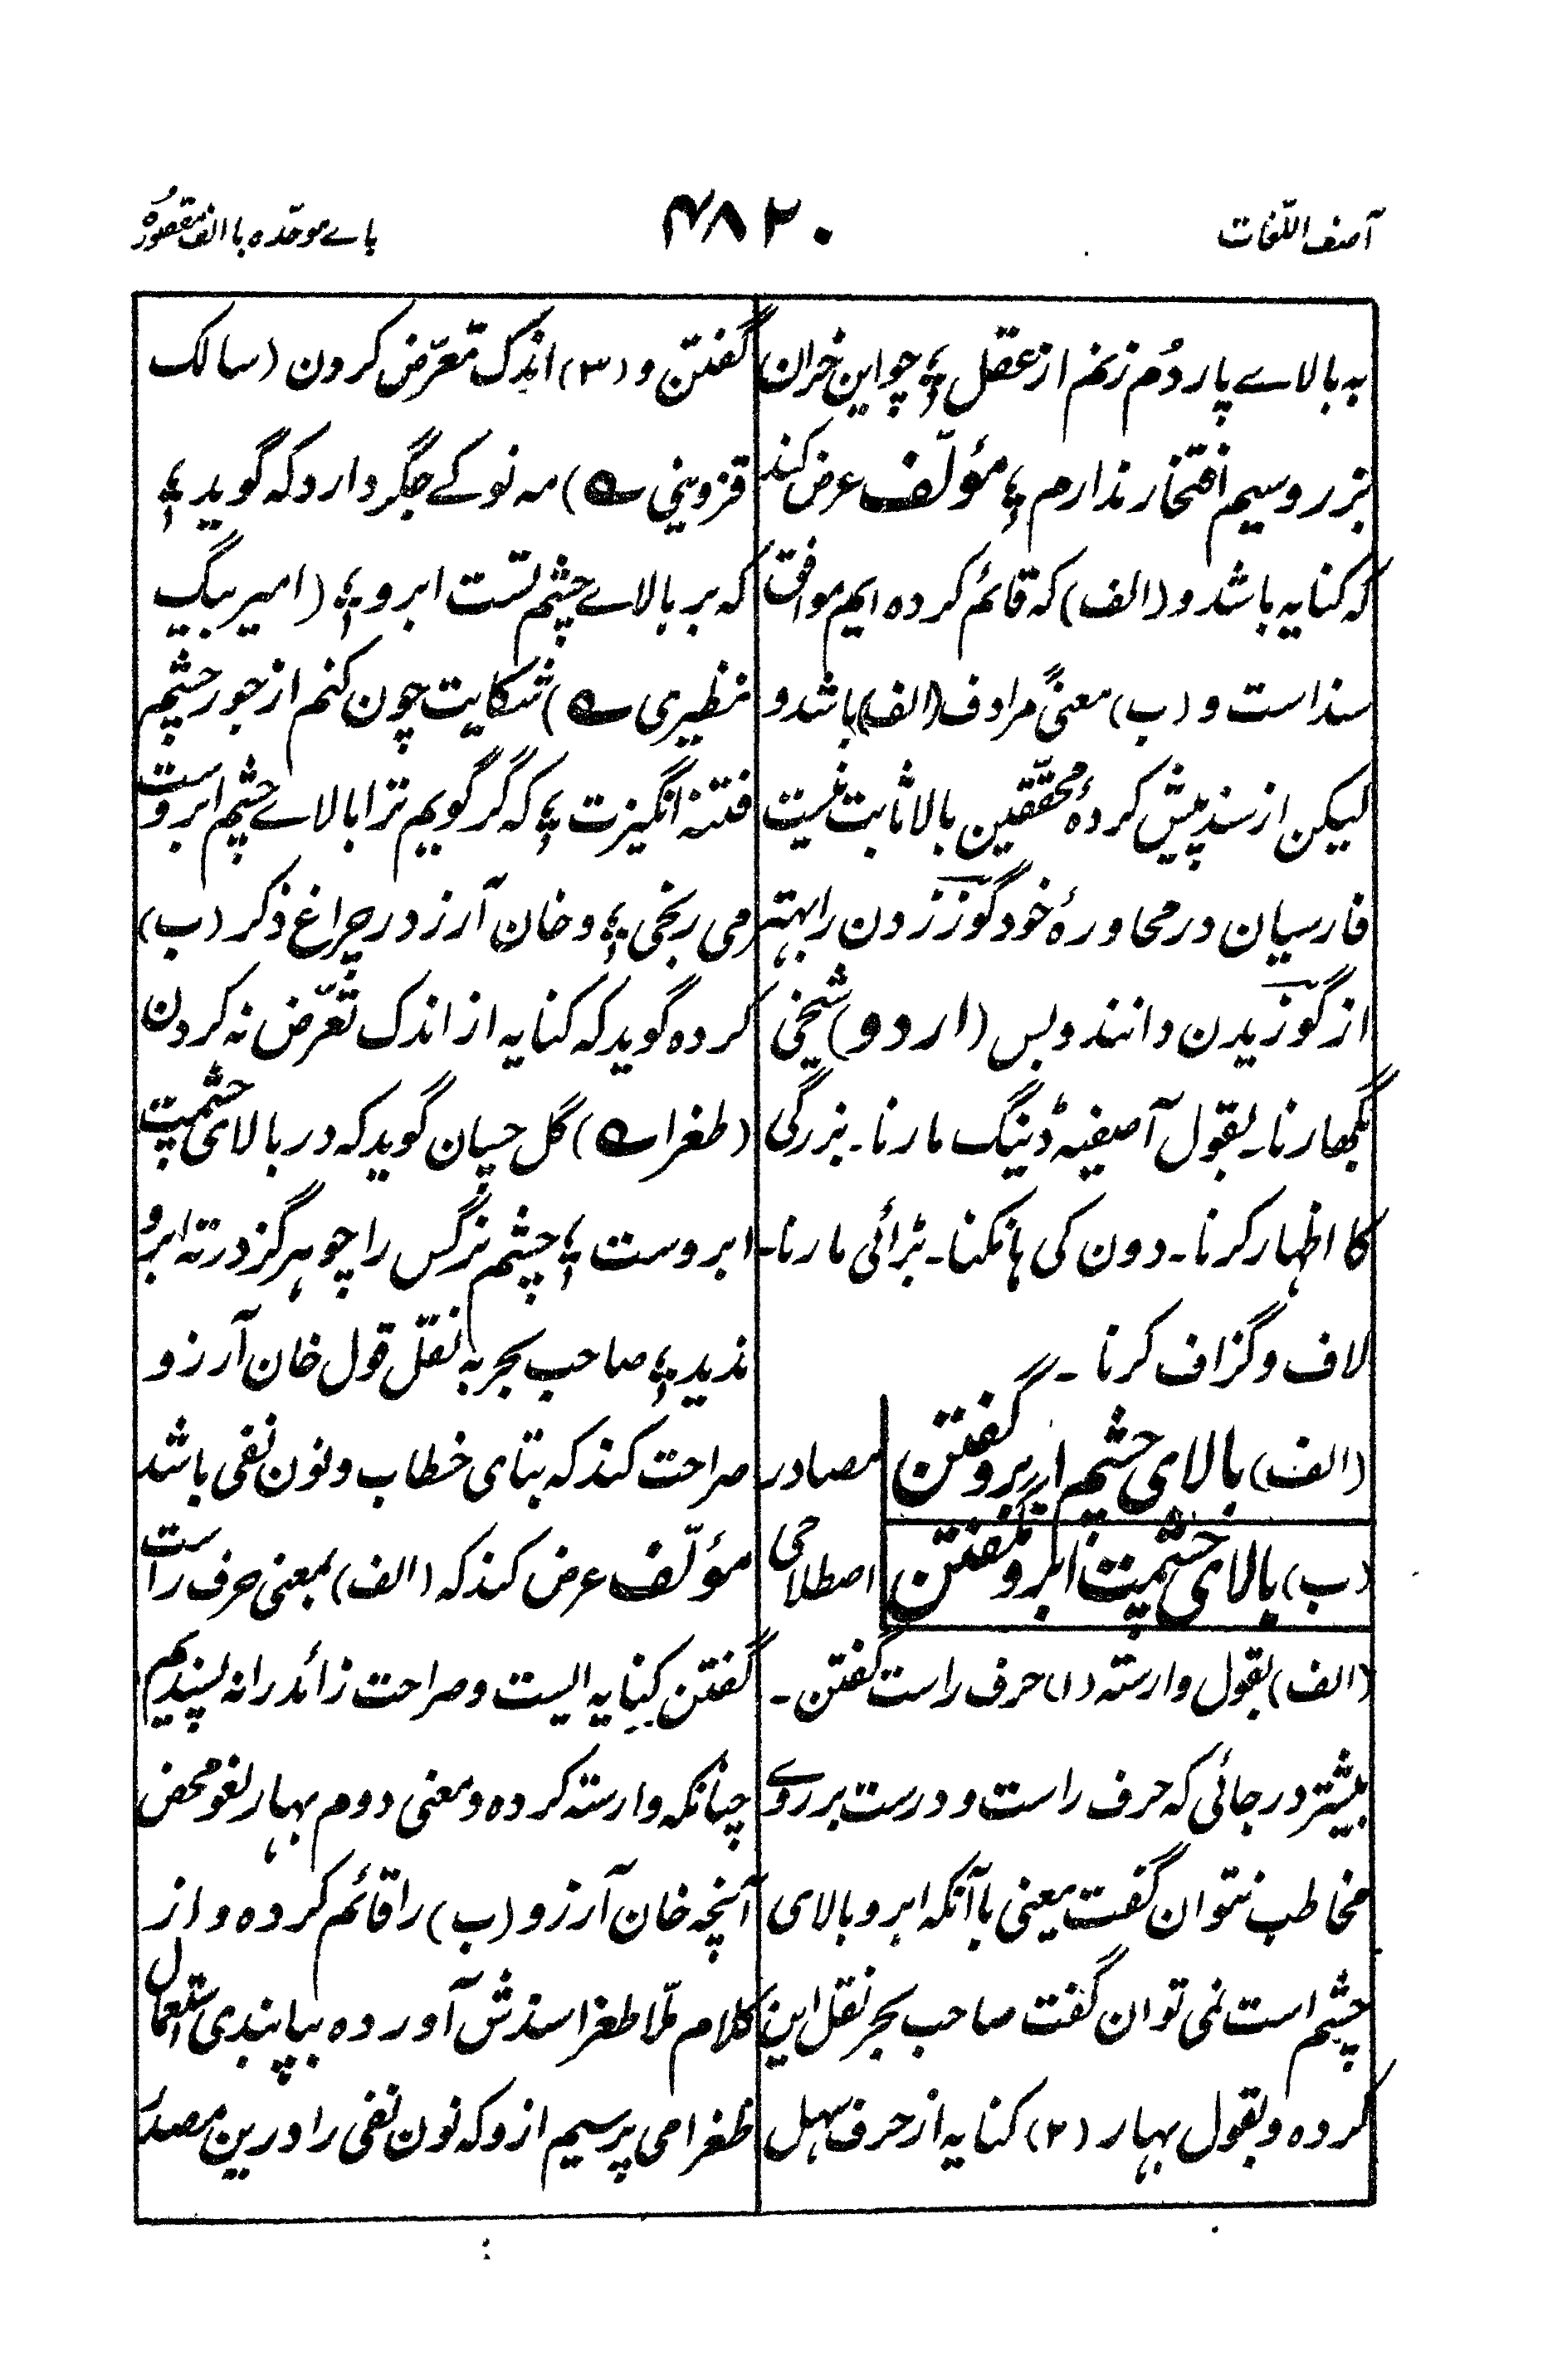 آصف اللّغات
۴۸۲۰
باے موحّدہ با الف مقصورہ
بہ بالاے پار دُم زنم از عقل ؛ چو این خران
بزر و سیم افتخار ندارم ؛ مؤلّف عرض کند
کہ کنایہ باشد و (الف) کہ قائم کردہ ایم موافق
سند است و (ب) معنیً مرادف (الف) باشد و
لیکن از سند پیش کردۂ محقّقین بالا ثابت نیست
فارسیان در محاورۂ خود گوز زدن را بہتر
از گوزیدن دانند و بس (اردو) شیخی
بگھارنا۔ بقول آصفیہ ڈینگ مارنا۔ بزرگی
کا اظہار کرنا۔ دون کی ہانکنا۔ بڑائی مارنا۔
لاف و گزاف کرنا ۔
(الف) بالای چشم ابرو گفتن مصادر
(ب) بالای چشمت ابرو نگفتن اصطلاحی
(الف) بقول وارستہ (۱) حرف راست گفتن ۔
بیشتر در جائی کہ حرف راست و درست بر روے
مخاطب نتوان گفت یعنی با آنکہ ابرو بالای
چشم است نمی توان گفت صاحب بحر نقل این
کردہ و بقول بہار (۲) کنایہ از حرف سہل
گفتن و (۳) اندک تعرّض کردن (سالک
قزوینی ؎) مہ نو کے جگر دارد کہ گوید ؛
کہ بر بالاے چشم تست ابرو ؛ (امیر بیگ
نظیری ؎) شکایت چون کنم از جور چشم
فتنہ انگیزت ؛ کہ گر گویم ترا بالاے چشم ابروست
می رنجی ؛ و خان آرزو در چراغ ذکر (ب)
کردہ گوید کہ کنایہ از اندک تعرّض نہ کردن
(طغرا ؎) گل چسان گوید کہ در بالای چشمت
ابروست ؛ چشم نرگس را چو ہرگز در تہ ابرو
ندید ؛ صاحب بحر بہ نقل قول خان آرزو
صراحت کند کہ بتای خطاب و نون نفی باشد
مؤلّف عرض کند کہ (الف) بمعنی حرف راست
گفتن کنایہ ایست و صراحت زائد را نہ پسندیم
چنانکہ وارستہ کردہ و معنی دوم بہار لغو محض
آنچہ خان آرزو (ب) را قائم کردہ و از
کلام ملّا طغرا سندش آوردہ بپابندی استعمال
طغرا می پرسیم ازو کہ نون نفی را درین مصدر